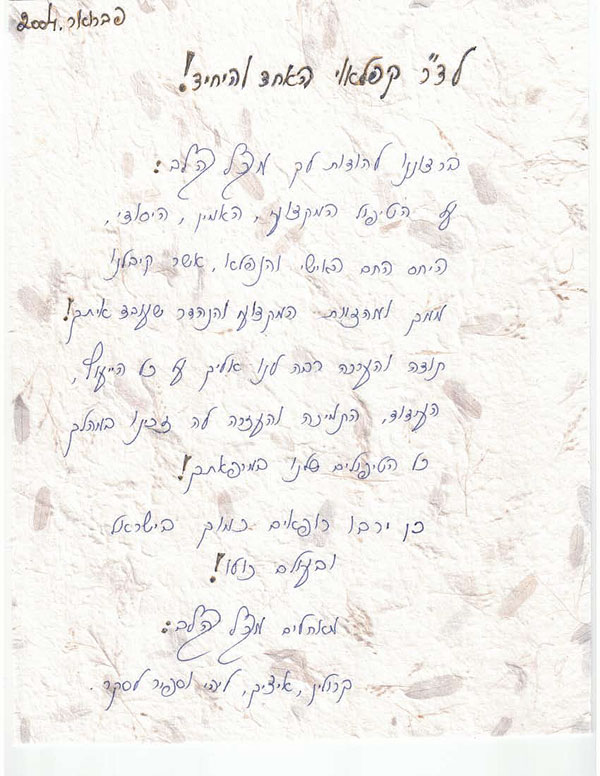 פברואר, 2004
לד"ר קפלאוי האחד והיחיד!
ברצוננו להודות לך מכל הלב:
על הטיפול המקצועי, האמין, היסודי,
היחס החם האישי והנפלא, אשר קיבלנו
ממך ומהצוות המקצועי והנהדר שעובד איתך!
תודה והערכה רבה לנו אליך על כל הייעוץ,
העידוד, התמיכה והעזרה לה זכינו במהלך
כל הטיפולים שלנו במיפאתך!
כן ירבו רופאים כמוך בישראל
ובעולם כולו!
מאחלים מכל הלב:
קרולין, איציק, ליהי וספיר לסקר.